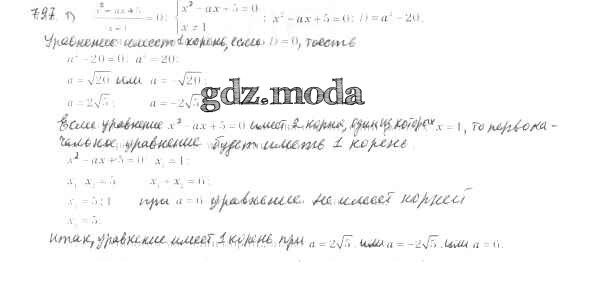 797. 1) (x² - ax + 5)/(x - 1) = 0; { x² - ax + 5 = 0 ; x² - ax + 5 = 0; D = a² - 20.
x ≠ 1
Уравнение имеет 1 корень, если D = 0, то есть
a² - 20 = 0; a² = 20;
a = √20 или a = -√20;
a = 2√5; a = -2√5
gdz.moda
Если уравнение x² - ax + 5 = 0 имеет 2 корня, один из которых x = 1, то первона-
чальное уравнение будет иметь 1 корень.
x² - ax + 5 = 0 x₁ = 1;
x₁ x₂ = 5 x₁ + x₂ = 6;
x₂ = 5 : 1 при a = 6 уравнение не имеет корней
x₂ = 5;
Итак, уравнение имеет 1 корень при a = 2√5 или a = -2√5 или a = 6.